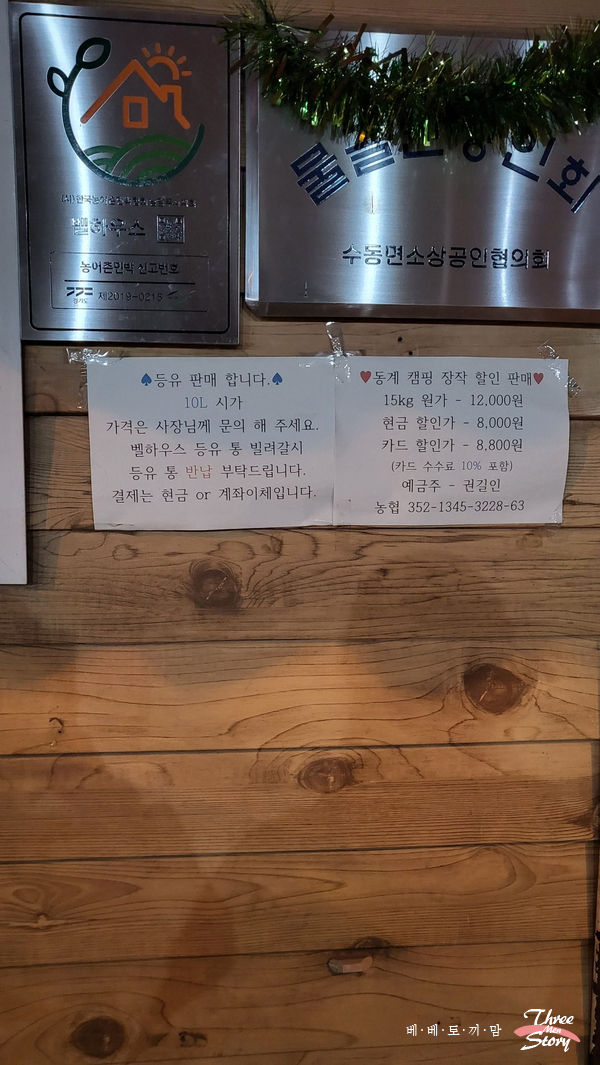 벨하우스
농어촌민박 신고번호
경기도 제2019-0215
인회
수동면소상공인협의회
♠등유 판매 합니다.♠
10L 시가
가격은 사장님께 문의 해 주세요.
벨하우스 등유 통 빌려갈시
등유 통 반납 부탁드립니다.
결제는 현금 or 계좌이체입니다.
♥동계 캠핑 장작 할인 판매♥
15kg 원가 - 12,000원
현금 할인가 - 8,000원
카드 할인가 - 8,800원
(카드 수수료 10% 포함)
예금주 - 권길인
농협 352-1345-3228-63
베·베·토·끼·맘
Three
Men
Story